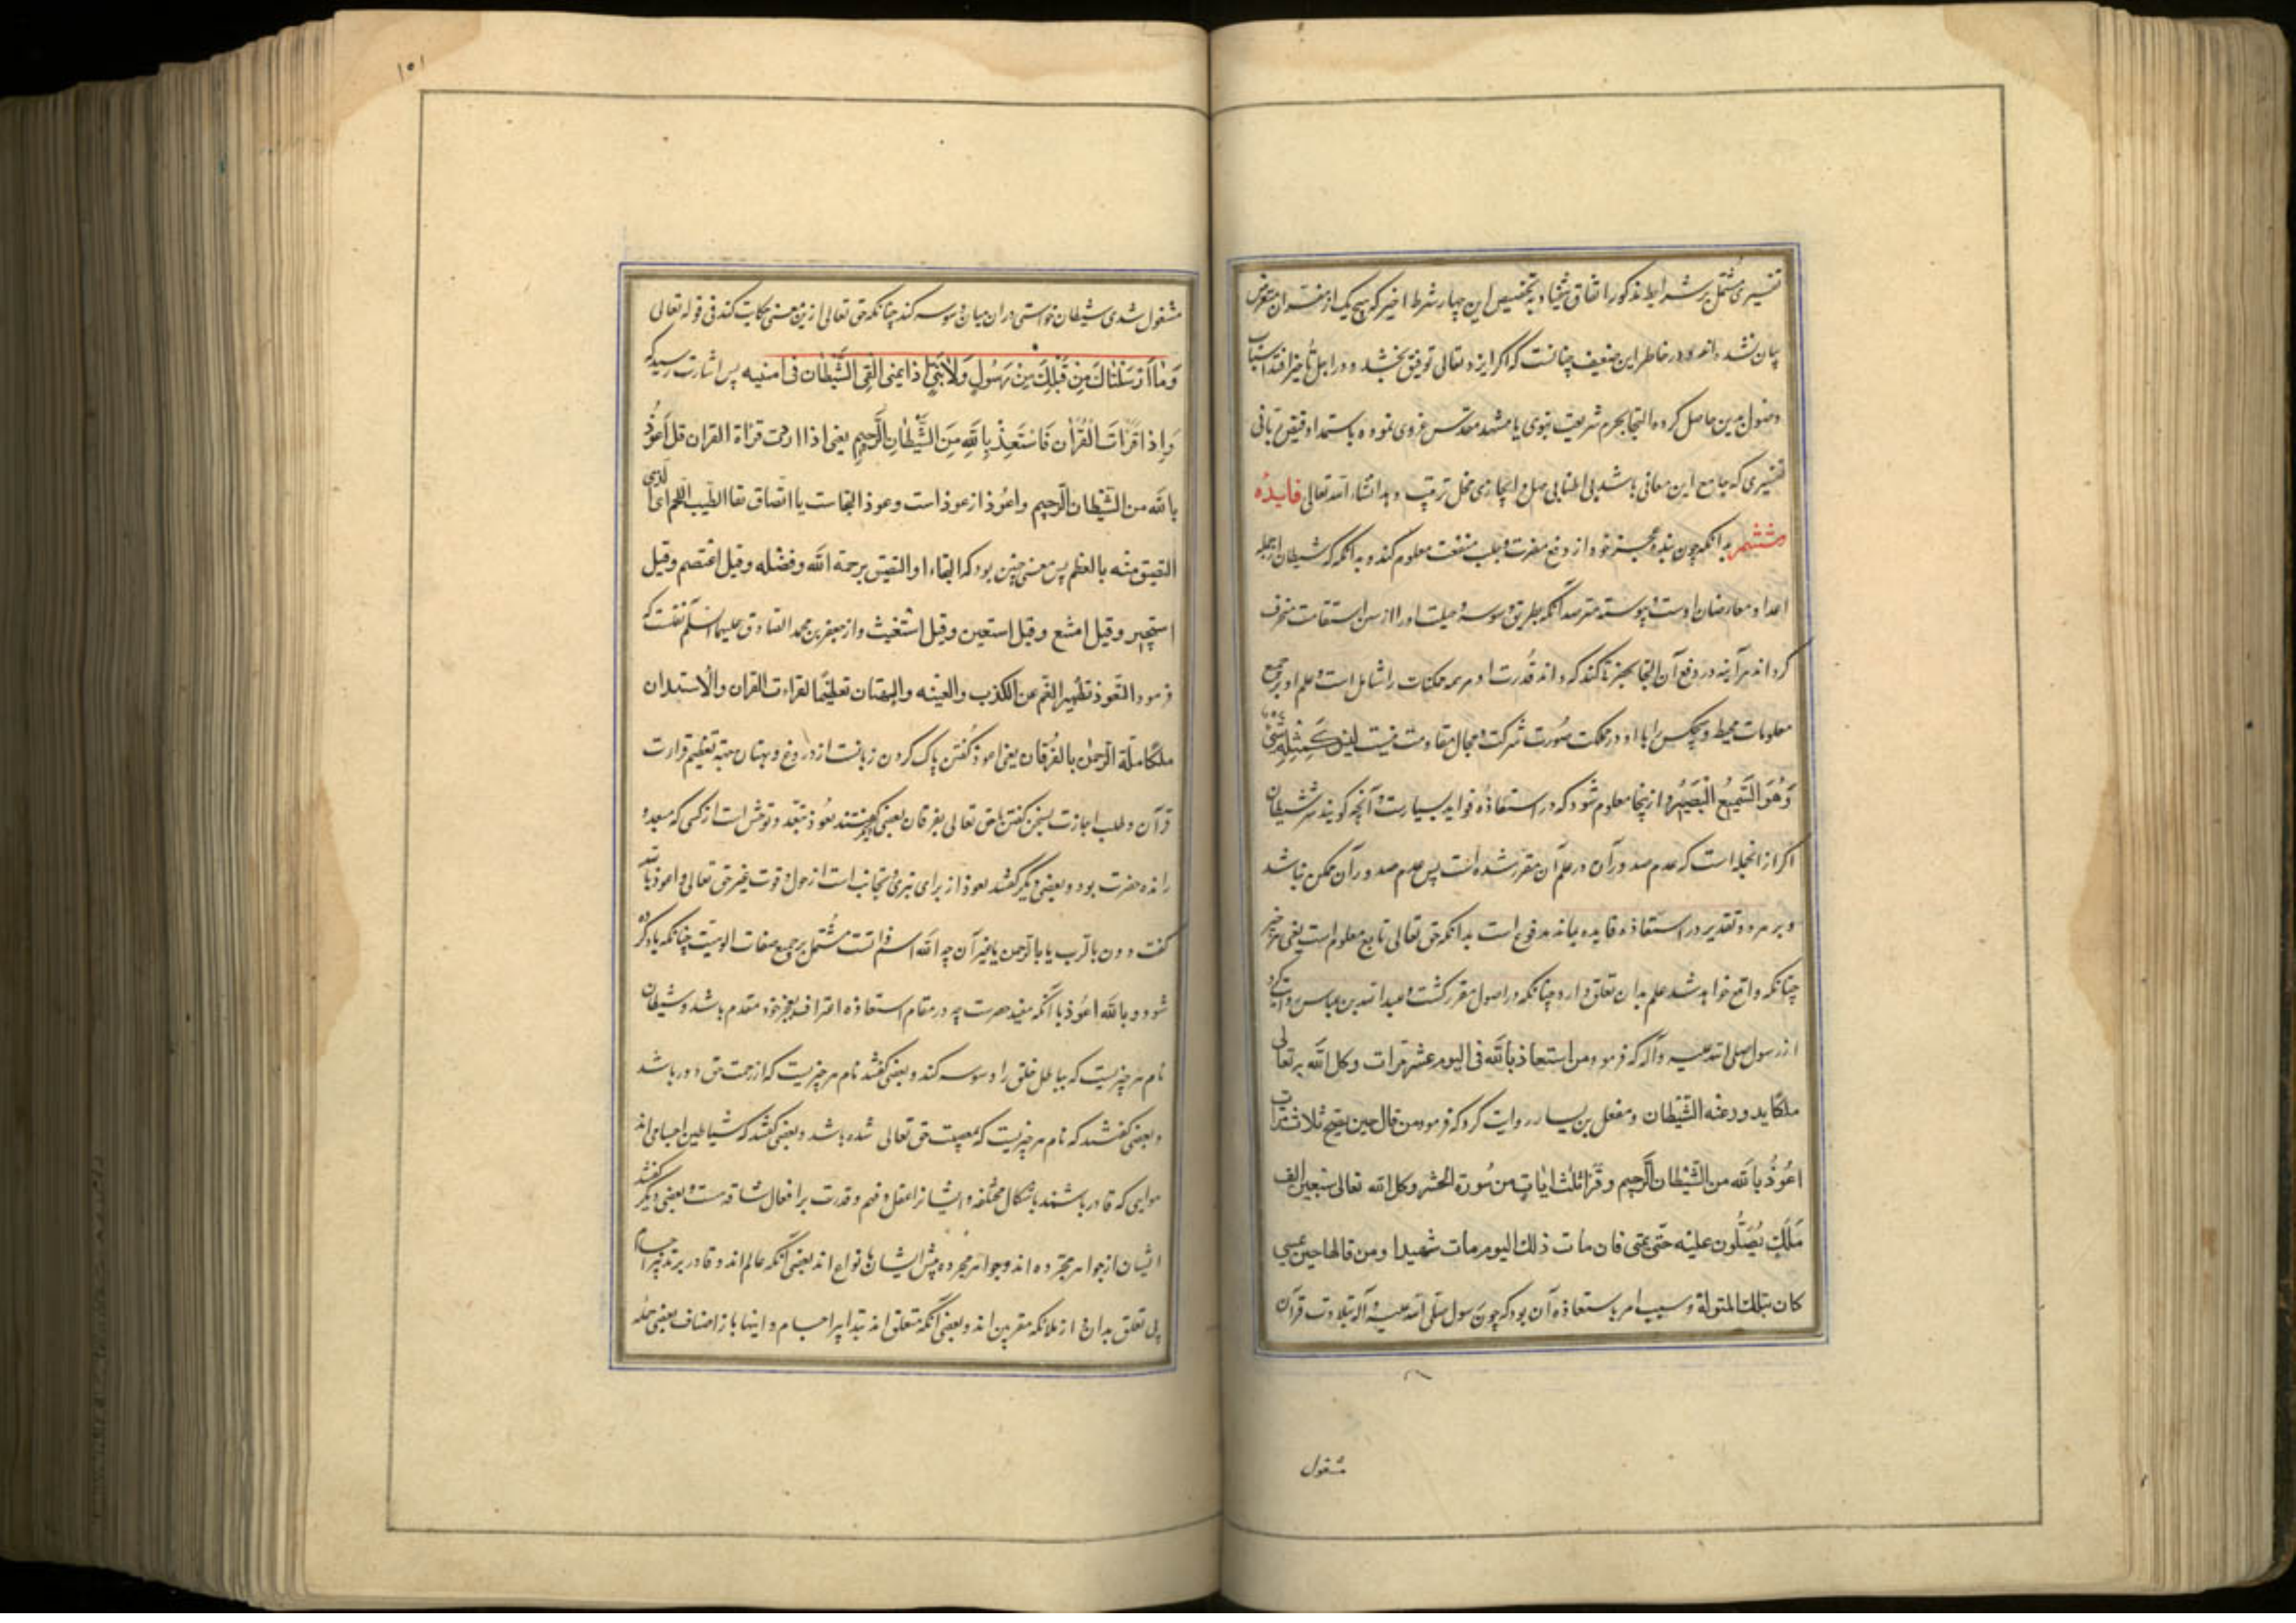 تفسیری مشتمل بر شرایط مذکور اتفاق نیفتاد به تخصیص این چهار شرط اخیر که هیچ یک از مفسران متعرض
بیان نشده اند و در خاطر این ضعیف چنانست که اگر ایزد تعالی توفیق بخشد و در اجل تأخیر افتد اسباب
وصول بدین حاصل کرده التجا بحرم شریعت نبوی یا مشهد مقدس غروی نموده باستمداد فیض ربانی
تفسیری که جامع این معانی باشد بی اطنابی ممل و ایجازی مخل ترتیب دهد انشاء الله تعالی فایده
ششم بدانکه چون بنده عجز خود از دفع مضرت و جلب منفعت معلوم کند و بدانکه شیطان از جمله
اعدا و معارضان اوست و پیوسته مترصد آنکه بطریق وسوسه و حیلت او را از سنن استقامت منحرف
کرداند هر آینه در دفع آن التجا بحضرتی کند که داند قدرت او بر همه ممکنات را شامل است و علم او بر جمیع
معلومات محیط و هیچکس را با او در مملکت صورت شرکت و مجال مقاومت نیست لیس کمثله شئ
وَهُوَ السَّمِیعُ الْبَصِیرُ و از ینجا معلوم شود که در استعاذه فواید بسیارست و آنچه کویند شر شیطان
اکر از انجمله است که عدم صدور آن در علم آن مقرر شده است پس عدم صدور آن ممکن نباشد
و بر هر دو تقدیر در استعاذه فایده نماند مدفوع است بدانکه حق تعالی تابع معلوم است یعنی هر چیز
چنانکه واقع خواهد شد علم بدان تعلق دارد چنانکه در اصول مقرر کشت و عبد الله بن عباس روایت کرد
از رسول صلی الله علیه وآله که فرمود من استعاذ بالله فی الیوم عشر مرات وکل الله تعالی
ملکا یدود عنه الشیطان ومعقل بن یسار روایت کرد که فرمود من قال حین یصبح ثلاث مرات
اعُوذُ بالله من الشیطان الرجیم وقرأ ثلث ایات من سُورة الحشر وکل الله تعالی سبعین الف
مَلَك یُصَلُّون علیه حتّی یمسی فان مات ذلك الیوم مات شهیدا ومن قالها حین یمسی
کان بتلك المنزلة وسبب امر باستعاذه آن بود که چون رسول صلی الله علیه وآله بتلاوت قرآن
مشغول
١٥١
مشغول شدی شیطان خواستی در ان میان وسوسه کند چنانکه حق تعالی ازین معنی حکایت کند فی قوله تعالی
وَمَا اَرْسَلْنَاكَ مِنْ قَبْلِكَ مِنْ رَسُولٍ وَلَا نَبِیٍّ اذا یمنی القی الشَّیْطَان فی امنیه پس اشارت رسید که
وَإِذا قَرَأْتَ الْقُرْآن فَاسْتَعِذْ بِاللهِ مِنَ الشَّیْطَانِ الرَّجِیمِ یعنی اذا اردت قراة القران قل أَعُوذُ
بالله من الشیطان الرّجیم واعُوذ از عوذ است وعوذ التجاست یا التصاق یقال اطیب اللحم الذی
التصق منه بالعظم پس معنی چنین بود که التجاء او التصق برحمة الله وفضله وقیل اعتصم وقیل
استجیر وقیل امتنع وقیل استعین وقیل استغیث و از جعفر بن محمد الصادق علیهما السلم نقلست که
فرمود التّعوذ تطهیر الفم عن الکذب والغیبه والبهتان تعظیمًا لقراءت القران والاستیذان
مکالمة الرحمٰن بالفُرقان یعنی اعوذ کفتن پاک کردن زبانست از دروغ و بهتان جهة تعظیم قراءت
قرآن و طلب اجازت بسخن کفتن با حق تعالی بفرقان بعضی کفتند تعوذ تبعّد و توحش است از کسی که مبعد و
رانده حضرت بود و بعضی دیگر کفتند تعوذ از برای تبری و تجانب است از حول و قوت غیر حق تعالی و اعوذ بالله
کفت دون بالرب یا بالرحمن یا غیر آن چه الله اسم ذاتست مشتمل بر جمیع صفات الوهیت چنانکه یاد کرده
شود و بالله اعُوذ با آنکه مفید حصرست چه در مقام استعاذه اعتراف بعجز خود مقدم باشد و شیطان
نام هر چیزیست که بباطل خلق را وسوسه کند و بعضی کفتند نام هر چیزیست که از رحمت حق دور باشد
و بعضی کفتند که نام هر چیزیست که بمعصیت حق تعالی شده باشد و بعضی کفتند که شیاطین اجسامی اند
هوایی که قادر باشند باشکال مختلفه و ایشانرا عقل و فهم و قدرت بر افعال شاقه هست و بعضی دیگر کفتند
ایشان از جواهر مجرده اند و جواهر مجرده پیش ایشان بانواع اند بعضی آنکه عالم اند و قادر بر تدبیر اجسام
بی تعلق بدان و از ملائکه مقربین اند و بعضی آنکه متعلق اند بتدابیر اجسام و اینها باز اصناف بعضی حمله